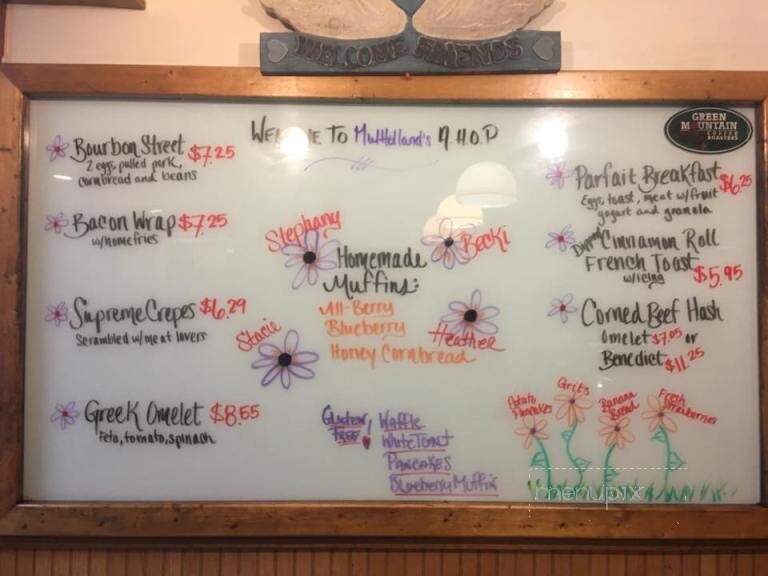 WELCOME FRIENDS
WELCOME TO Mulholland's N.H.O.P
GREEN
MOUNTAIN
COFFEE
ROASTERS
Bourbon Street $7.25
2 eggs, pulled pork,
cornbread and beans
Bacon Wrap $7.25
w/homefries
Supreme Crepes $6.29
Scrambled w/meat lovers
Greek Omelet $8.55
Feta, tomato, spinach
Stephany
Becki
Stacie
Heather
Homemade
Muffins:
All-Berry
Blueberry
Honey Cornbread
Gluten
Free
Waffle
White Toast
Pancakes
Blueberry Muffin
Parfait Breakfast $6.25
Eggs, toast, meat w/fruit
yogurt and granola
Cinnamon Roll
French Toast
w/icing $5.95
Corned Beef Hash
Omelet $7.85 or
Benedict $11.25
Potato
Pancakes
Grits
Banana
Bread
Fresh
Strawberries
menupix